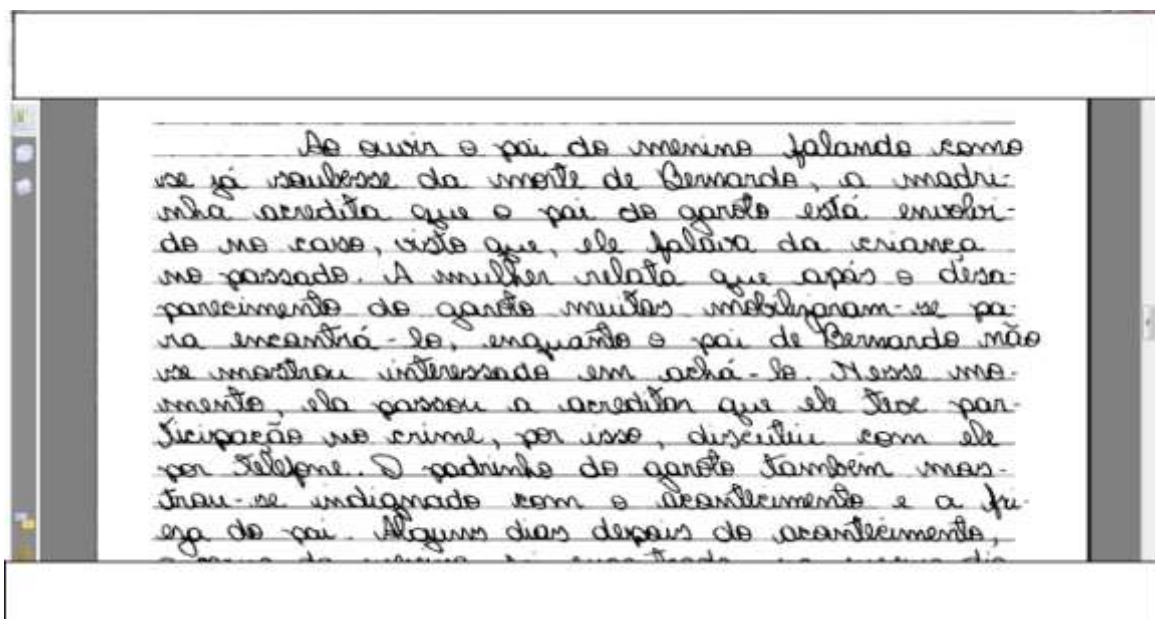 Ao ouvir o pai do menino falando como
se já soubesse da morte de Bernardo, a madri-
nha acredita que o pai do garoto está envolvi-
do no caso, visto que, ele falava da criança
no passado. A mulher relata que após o desa-
parecimento do garoto muitos mobilizaram-se pa-
ra encontrá-lo, enquanto o pai de Bernardo não
se mostrou interessado em achá-lo. Nesse mo-
mento, ela passou a acreditar que ele teve par-
ticipação no crime, por isso, discutiu com ele
por telefone. O padrinho do garoto também mos-
trou-se indignado com o acontecimento e a fri-
eza do pai. Alguns dias depois do acontecimento,